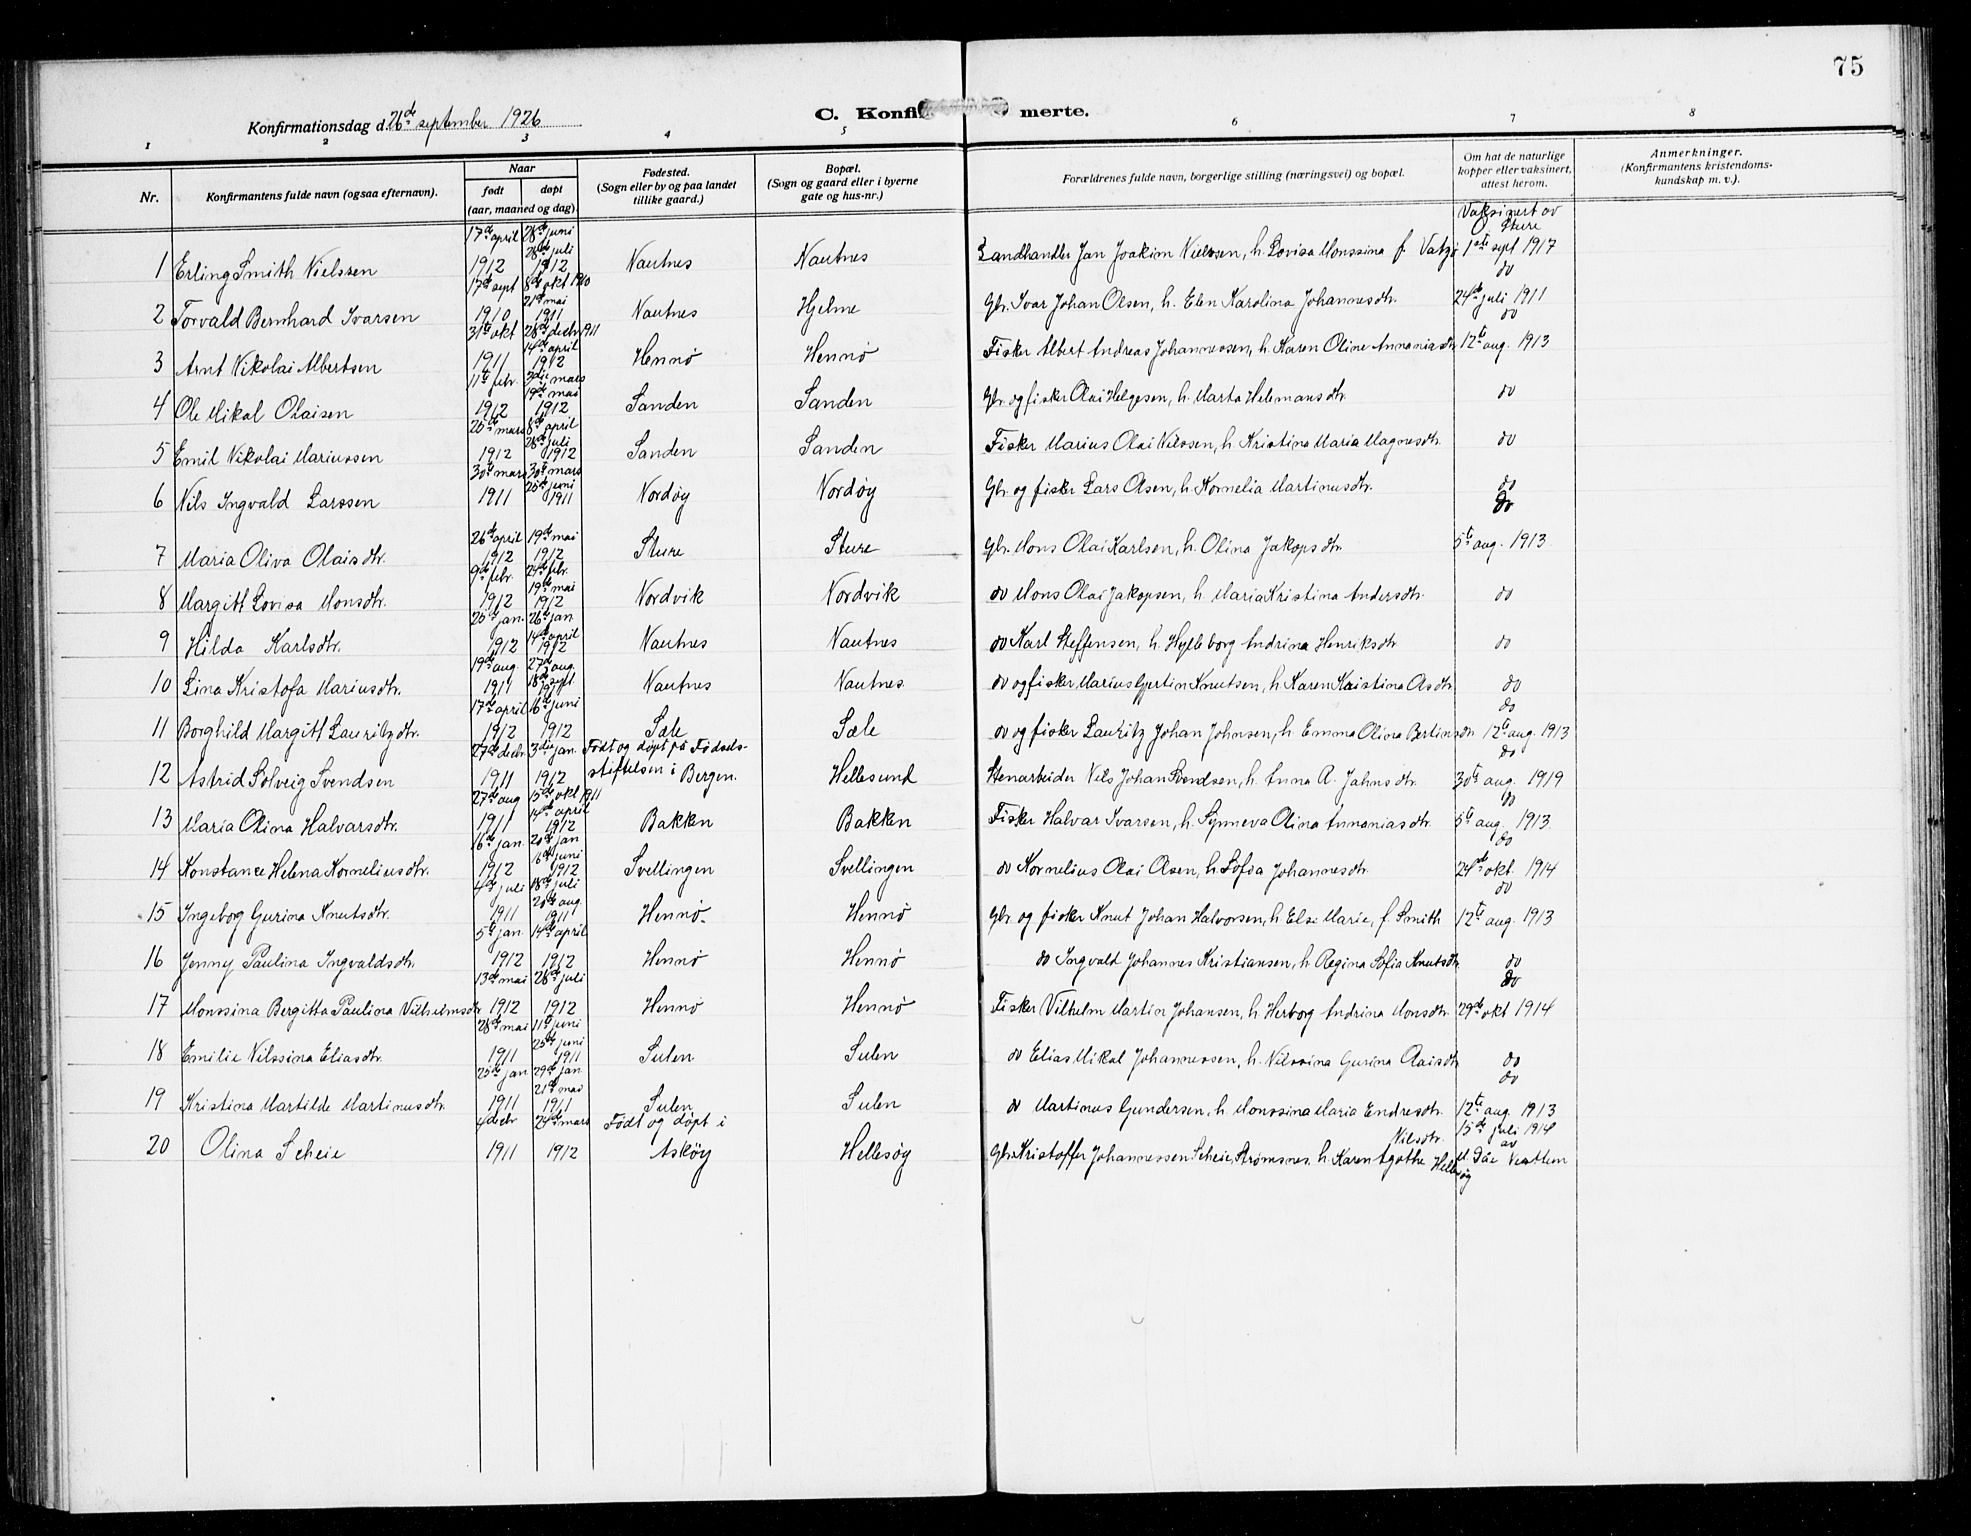 75
C. Konfi merte.
Konfirmationsdag d. 26de september 1926
1 2 3 4 5 6 7 8
Nr. Konfirmantens fulde navn (ogsaa efternavn). Naar født døpt (aar, maaned og dag) Fødested. (Sogn eller by og paa landet tillike gaard.) Bopæl. (Sogn og gaard eller i byerne gate og hus-nr.) Forældrenes fulde navn, borgerlige stilling (næringsvei) og bopæl. Om hat de naturlige kopper eller vaksinert, attest herom. Anmerkninger. (Konfirmantens kristendoms-kundskap m. v.).
Vaksinert av Sture
1 Erling Smith Nielssen 17de april 1912 28de juni 28de juli 1912 Nautnes Nautnes Landhandler Jan Joakim Nielssen, h. Lovisa Monssina f. 1ste sept 1917
2 Torvald Bernhard Ivarsen 17de sept 1910 8de okt 1910 21de mai 1911 Nautnes Hjelme Gbr. Ivar Johan Olsen, h. Elen Karolina Johannesdtr. do 24de juli 1911
3 Arnt Nikolai Albertsen 31te okt 1911 28de decbr 1911 14de april 1912 Hennø Hennø Fisker Albert Andreas Johannessen, h. Karen Oline Annaniasdtr do 12te aug. 1913
4 Ole Mikal Olaisen 11te febr. 1912 3die mars 19de mai 1912 Sanden Sanden Gbr. og fisker Olai Helgesen, h. Marta Helemansdtr. do
5 Emil Nikolai Mariussen 25de mars 1912 8de april 28de juli 1912 Sanden Sanden Fisker Marius Olai Nilssen, h. Kristina Maria Magnesdtr. do
6 Nils Ingvald Larssen 30te mars 1911 30te mars 25de juni 1911 Nordøy Nordøy Gbr. og fisker Lars Olsen, h. Kornelia Martinusdtr. do
7 Maria Oliva Olaisdtr. 26de april 1912 19de mai 1912 Sture Sture Gbr. Mons Olai Karlsen, h. Olina Jakopsdtr. do 5te aug. 1913
8 Margitt Lovisa Monsdtr. 9de febr. 1912 24de febr. 19de mai 1912 Nordvik Nordvik do Mons Olai Jakopsen, h. Maria Kristina Andersdtr. do
9 Hilda Karlsdtr. 25de jan. 1912 26de jan. 14de april 1912 Nautnes Nautnes do Karl Steffensen, h. Hylleborg Andrina Henriksdtr do
10 Lina Kristofa Mariusdtr. 19de aug. 1911 27de aug. 18de sept 1911 Nautnes Nautnes do og fisker Marius Gjertin Knutsen, h. Karen Kristina Asdtr do
11 Borghild Margitt Lauritzdtr. 17de april 1912 16de juni 1912 Sæle Sæle do og fisker Lauritz Johan Johnsen, h. Emma Olina Bertinsdtr do 12te aug. 1913
12 Astrid Solveig Svendsen 27de decbr 1911 3die jan. 1912 Født og døpt på Fødselsstiftelsen i Bergen. Hellesund Stenarbeider Nils Johan Svendsen, h. Anna A. Jahnsdtr. do 30te aug. 1919
13 Maria Olina Halvarsdtr. 27de aug 1911 15de okt 1911 14de april 1912 Bakken Bakken Fisker Halvar Ivarsen, h. Synneva Olina Annaniasdtr. do 5te aug. 1913
14 Konstance Helena Korneliusdtr. 16de jan. 1912 20de jan 16de juni 1912 Svellingen Svellingen do Kornelius Olai Olsen, h. Sofia Johannesdtr. do 24de okt. 1914
15 Ingeborg Gurina Knutsdtr. 4de juli 1911 18de juli 20de aug. 1911 Hennø Hennø Gbr. og fisker Knut Johan Halvorsen, h. Else Marie, f. Smith do 12te aug. 1913
16 Jenny Paulina Ingvaldsdtr. 5te jan. 1912 14de april 1912 Hennø Hennø do Ingvald Johannes Kristiansen, h. Regina Sofia Knutsdtr do
17 Monssina Bergitta Paulina Vilhelmsdtr 13de mai 1912 28de juli 1912 Hennø Hennø Fisker Vilhelm Martin Johansen, h. Herborg Andrina Monsdtr. do 29de okt 1914
18 Emilie Nilssina Eliasdtr. 28de mai 1911 11te juni 25de juni 1911 Sulen Sulen do Elias Mikal Johannessen, h. Nilssina Gurina Olaisdtr do
19 Kristina Martilde Martinusdtr. 25de jan 1911 29de jan. 21de mai 1911 Sulen Sulen do Martinus Gundersen, h. Monssina Maria Endresdtr. do 12te aug. 1913
20 Olina Scheie 4 decbr 1911 24de mars 1912 Født og døpt i Askøy Hellesøy Gbr. Kristoffer Johannessen Scheie, Strømsnes, h. Karen Agathe Nilsdtr. Hellesøy 15de juli 1914 av